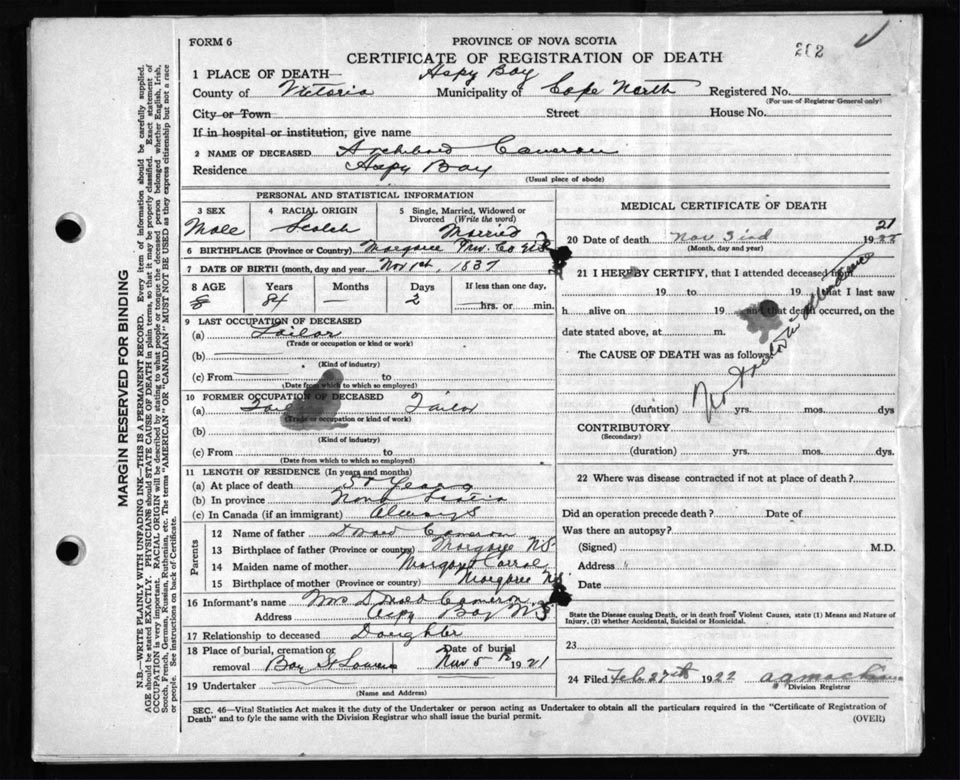 FORM 6
PROVINCE OF NOVA SCOTIA
202
CERTIFICATE OF REGISTRATION OF DEATH
1 PLACE OF DEATH— Aspy Bay
County of Victoria Municipality of Cape North Registered No.
(For use of Registrar General only)
City or Town Street House No.
If in hospital or institution, give name
2 NAME OF DECEASED Archibald Cameron
Residence Aspy Bay
(Usual place of abode)
PERSONAL AND STATISTICAL INFORMATION
3 SEX 4 RACIAL ORIGIN 5 Single, Married, Widowed or Divorced (Write the word)
Male Scotch Married
6 BIRTHPLACE (Province or Country) Margaree Inv. Co
7 DATE OF BIRTH (month, day and year) Nov 1st, 1837
8 AGE Years Months Days If less than one day,
84 — 2 hrs. or min.
9 LAST OCCUPATION OF DECEASED
(a) Tailor
(Trade or occupation or kind or work)
(b)
(Kind of industry)
(c) From to
(Date from which to which so employed)
10 FORMER OCCUPATION OF DECEASED
(a) Tailor
(Trade or occupation or kind of work)
(b)
(Kind of industry)
(c) From to
(Date from which to which so employed)
11 LENGTH OF RESIDENCE (In years and months)
(a) At place of death 50 Years
(b) In province Nova Scotia
(c) In Canada (if an immigrant) Always
Parents
12 Name of father Cameron
13 Birthplace of father (Province or country) Margaree NS
14 Maiden name of mother Margaret
15 Birthplace of mother (Province or country) Margaree NS
16 Informant's name Mrs Cameron
Address Aspy Bay N.S
17 Relationship to deceased Daughter
18 Place of burial, cremation or Date of burial
removal Bay St Lawrence Nov 5th 1921
19 Undertaker
(Name and Address)
MEDICAL CERTIFICATE OF DEATH
21
20 Date of death Nov 3rd 1922
(Month, day and year)
21 I HEREBY CERTIFY, that I attended deceased from
19 to 19 that I last saw
h alive on 19 and that death occurred, on the
date stated above, at m.
The CAUSE OF DEATH was as follows:
No Doctor in attendance
(duration) yrs. mos. dys
CONTRIBUTORY
(Secondary)
(duration) yrs. mos. dys.
22 Where was disease contracted if not at place of death?
Did an operation precede death? Date of
Was there an autopsy?
(Signed) M.D.
Address
Date
State the Disease causing Death, or in death from Violent Causes, state (1) Means and Nature of
Injury, (2) whether Accidental, Suicidal or Homicidal.
23
24 Filed Feb 27th 1922
Division Registrar
SEC. 46—Vital Statistics Act makes it the duty of the Undertaker or person acting as Undertaker to obtain all the particulars required in the "Certificate of Registration of
Death" and to fyle the same with the Division Registrar who shall issue the burial permit. (OVER)
MARGIN RESERVED FOR BINDING
N.B.—WRITE PLAINLY WITH UNFADING INK—THIS IS A PERMANENT RECORD. Every item of information should be carefully supplied.
AGE should be stated EXACTLY. PHYSICIANS should STATE CAUSE OF DEATH in plain terms, so that it may be properly classified. Exact statement of
OCCUPATION is very important. RACIAL ORIGIN will be described by stating to what people or tongue the deceased person belonged whether English, Irish,
Scotch, French, German, Russian, Ruthenian, etc. The terms "AMERICAN" OR "CANADIAN" MUST NOT BE USED as they express citizenship but not a race
or people. See instructions on back of Certificate.